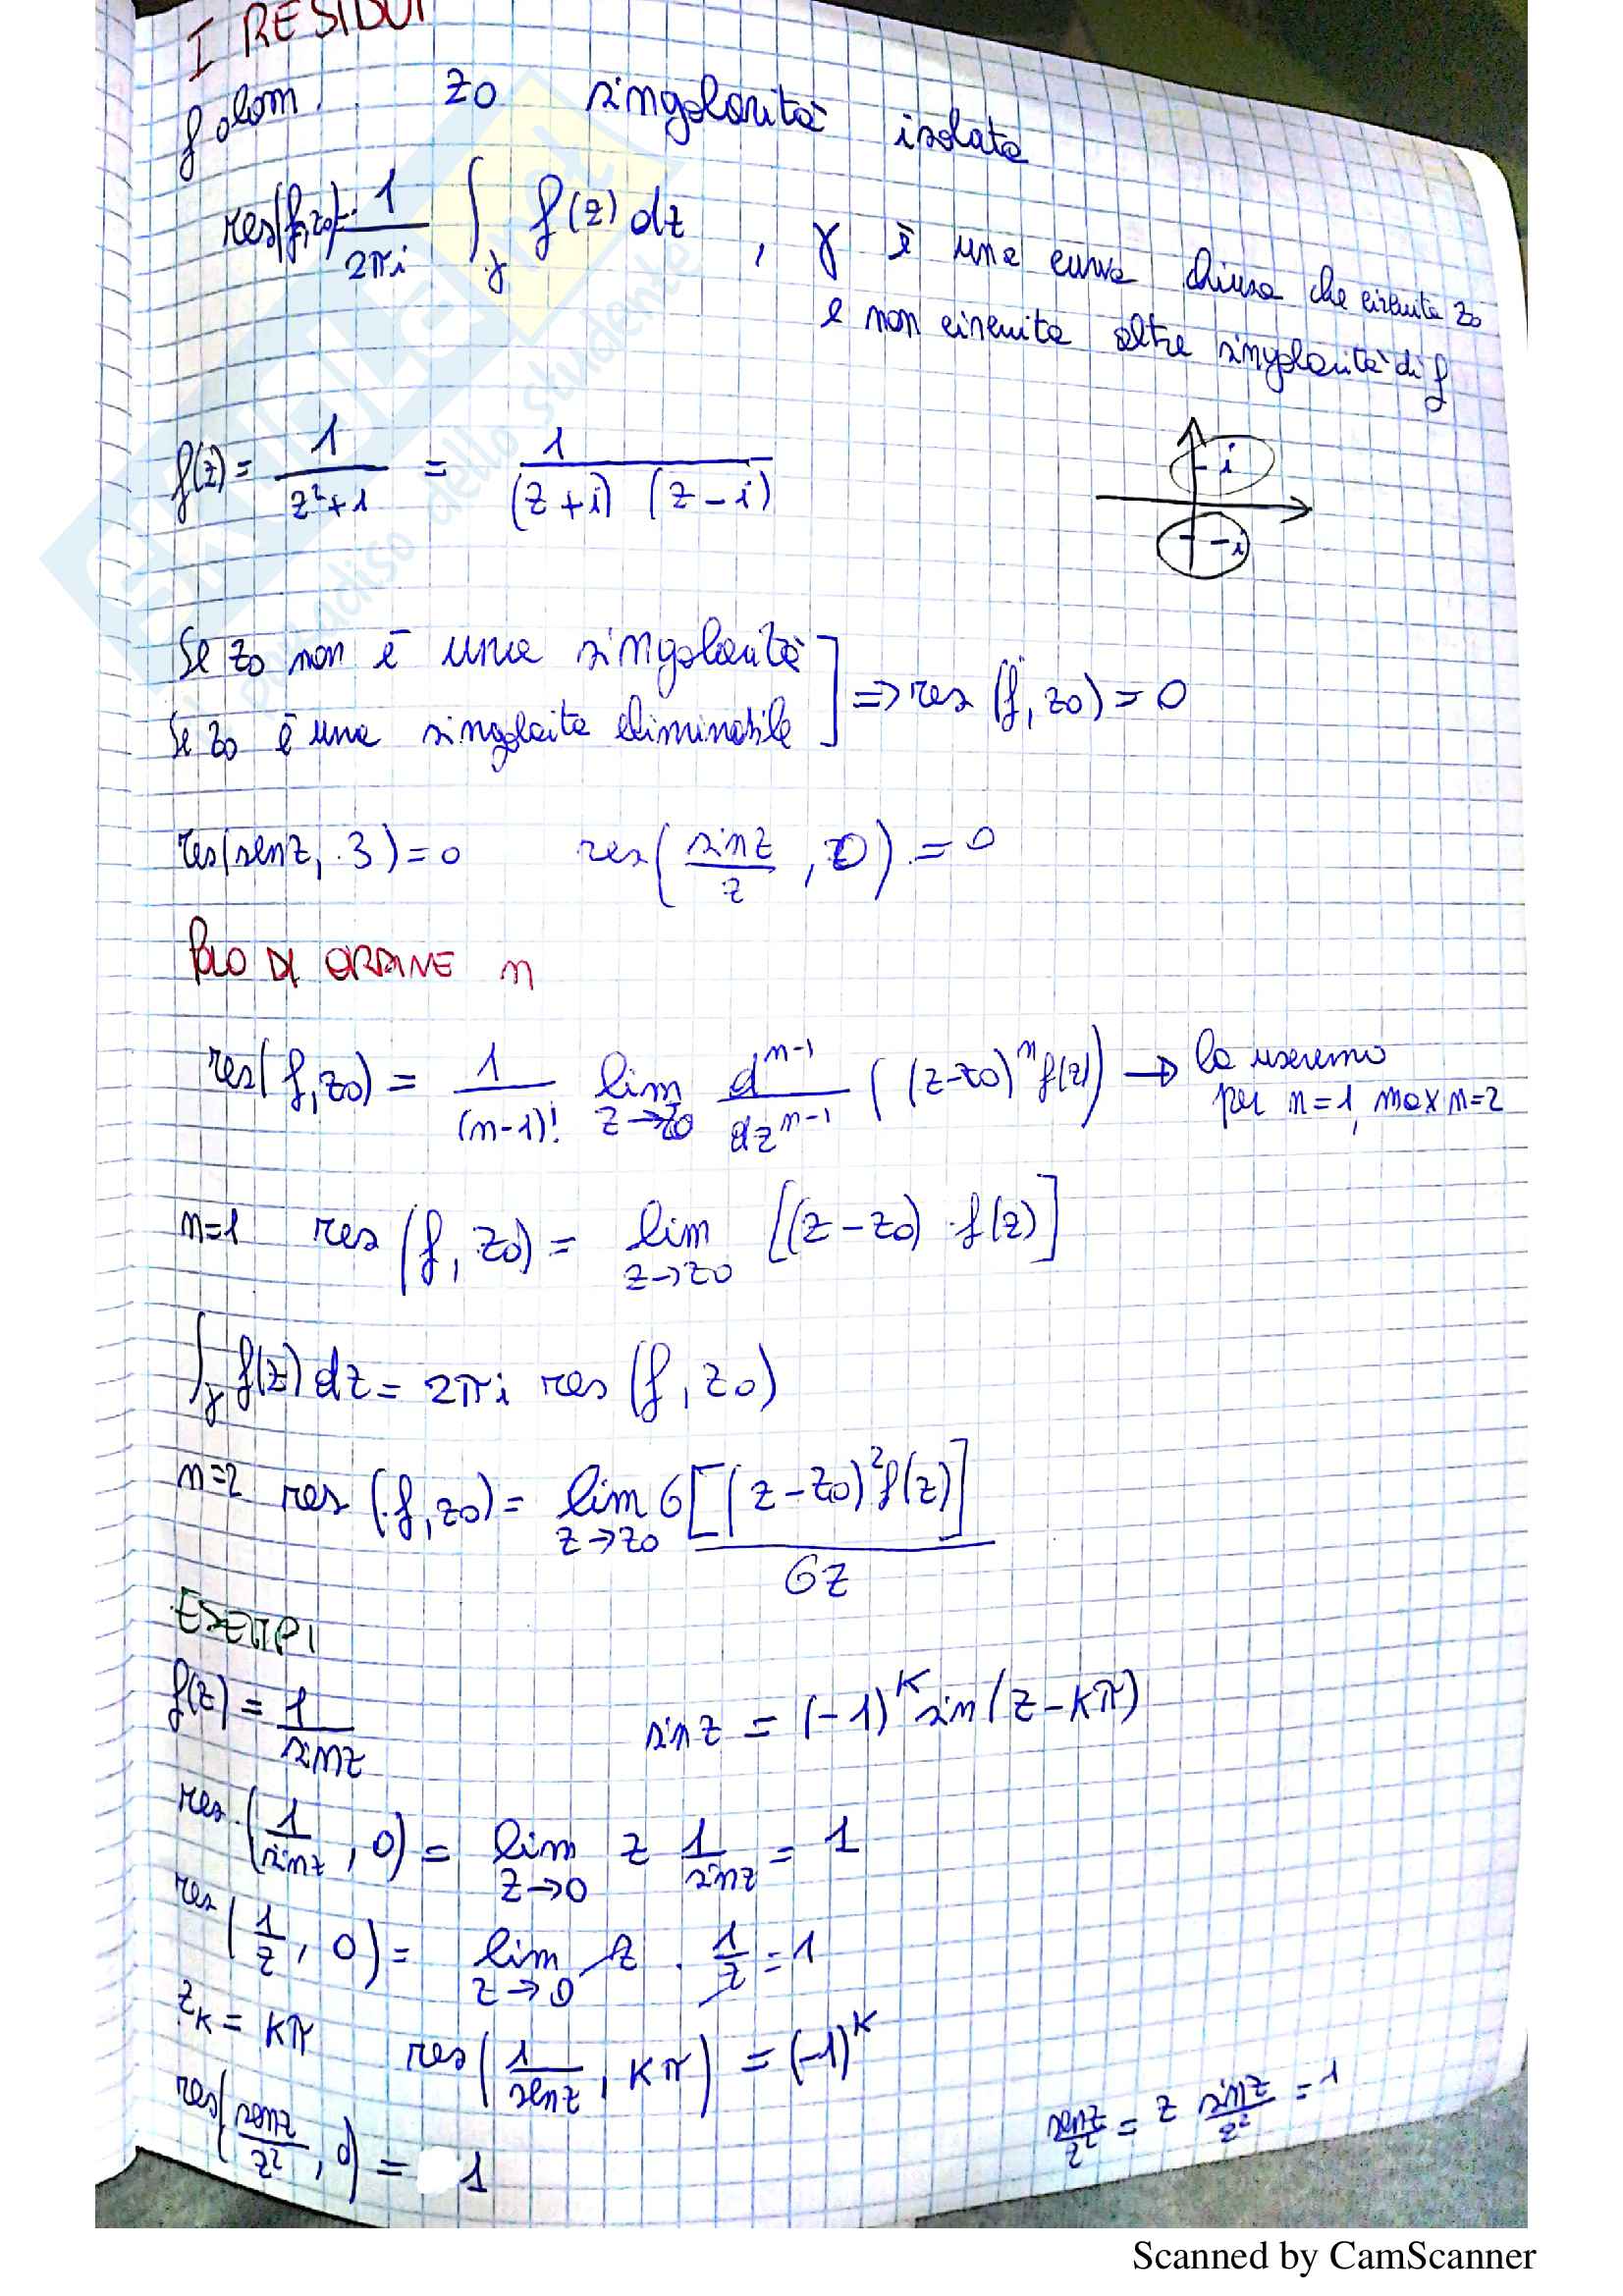 I RESIDUI
f olom. z0 singolarità isolata
res(f,z0)= 1/2πi ∫γ f(z) dz , γ è una curva chiusa che circuita z0
e non circuita altre singolarità di f
f(z) = 1/z²+1 = 1/(z+i) (z-i)
i
-i
Se z0 non è una singolarità
Se z0 è una singolaita eliminabile ] => res (f, z0) = 0
res(senz, 3) = 0 res( sinz/z , 0) = 0
POLO DI ORDINE n
res(f,z0) = 1/(n-1)! lim z→z0 d^n-1/dz^n-1 ((z-z0)^n f(z)) → la useremo
per n=1, max n=2
n=1 res (f, z0) = lim z→z0 [(z-z0) · f(z)]
∫γ f(z) dz = 2πi res (f, z0)
n=2 res (f, z0) = lim z→z0 6[(z-z0)² f(z)]/6z
ESEMPI
f(z) = 1/sinz sinz = (-1)^k sin(z-kπ)
res (1/sinz , 0) = lim z→0 z 1/sinz = 1
res (1/z , 0) = lim z→0 z · 1/z = 1
zk = kπ res (1/senz , kπ) = (-1)^k
res( senz/z² , 0) = 1 senz/z² = z sinz/z² = 1
Scanned by CamScanner